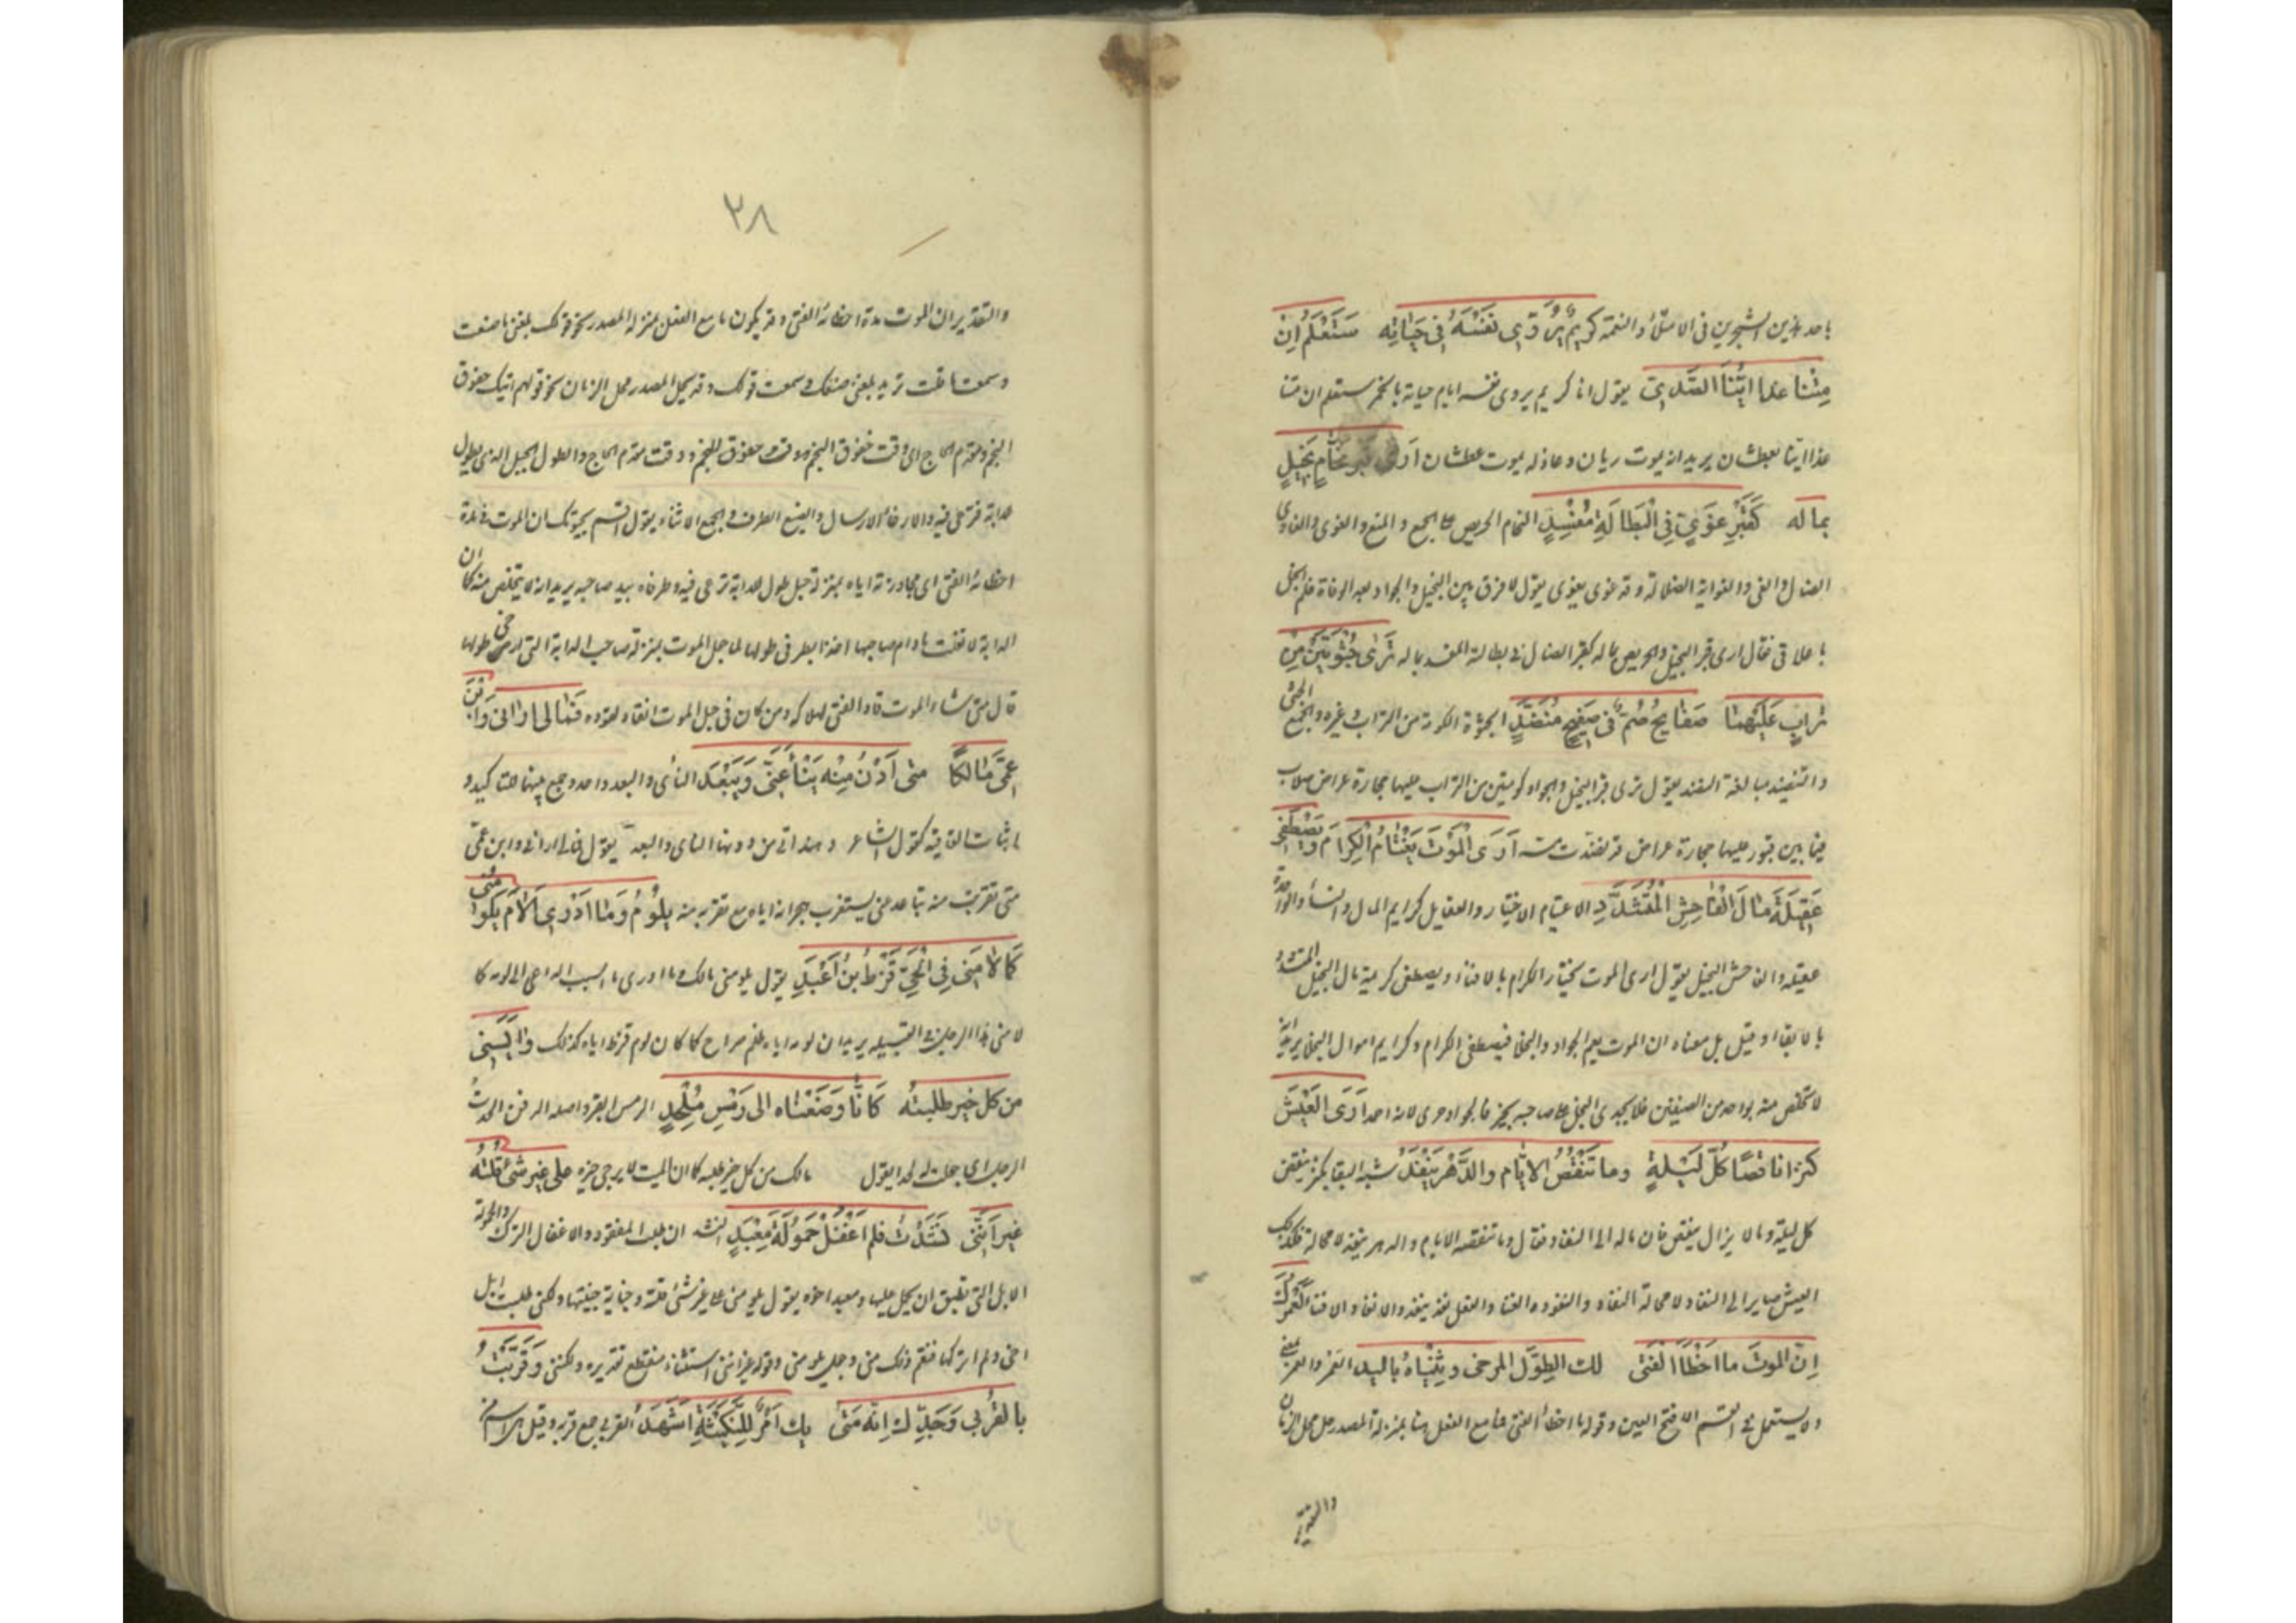 باحد هذين الشجرين فى الامتلاء والنعمة كَرِيمٌ يُرَوِّى نَفْسَهُ فِى حَيَاتِه سَتَعْلَمُ اِنْ
مِتْنا غدا اَيُّنَا الصَّدِىْ يقول انا كريم يروى نفسه ايام حياته بالخمر ستعلم ان متنا
غدا اينا العطشان يريد انه يموت ريان وعاذله يموت عطشان اَرَى قَبْرَ نَحَّامٍ بَخِيلٍ
بماله كَقَبْرِ غَوِىٍّ فِى الْبَطَالَةِ مُفْسِدٍ النحام الحريص على الجمع والمنع والغوى والغاوى
الضال والغى والغواية الضلالة وقد غوى يغوى يقول لا فرق بين البخيل والجواد بعد الوفاة فلم ابخل
باعلاقى فقال ارى قبر البخيل والحريص بماله كقبر الضال فى بطالته المفسد بماله تَرَى جُثْوَتَيْنِ مِنْ
تُرابٍ عَلَيْهِمَا صَفَايِحُ صُمٌّ فِى صَفِيحٍ مُنَضَّدٍ الجثوة الكومة من التراب وغيره والجمع الجثى
والتنضيد مبالغة النضد يقول ترى قبرى البخيل والجواد كومتين من التراب عليهما حجارة عراض صلاب
فيما بين قبور عليها حجارة عراض قد نضدت اَرَى الْمَوْتَ يَعْتَامُ الْكِرَامَ وَيَصْطَفِى
عَقِيلَةَ مَالِ الْفَاحِشِ الْمُتَشَدِّدِ الاعتيام الاختيار والعقايل كرايم المال والنساء والواحدة
عقيلة والفاحش البخيل يقول ارى الموت يختار الكرام بالافناء ويصطفى كريمة مال البخيل المتشدد
بالابقاء وقيل بل معناه ان الموت يعم الجواد والبخلا فيصطفى الكرام وكرايم اموال البخلا يريد انه
لا تخلص منه بواحد من الصنفين فلا يجدى البخل على صاحبه بخير فالجواد احرى لانه احمد اَرَى الْعَيْشَ
كنزا ناقصًا كُلَّ لَيْلَةٍ وما تَنْقُصُ الايّام والدَّهْرُ يَنْفَدُ شبه البقا بكنز ينقص
كل ليلة وما لا يزال ينقص فان ماله الى النفاد فقال وما تنقصه الايام والدهر ينفد لا محالة فكذلك
العيش صاير الى النفاد لا محالة النفاد والنفود الفنا والفعل نفذ ينفد والانفاد الافنا لَعَمْرُكَ
اِنّ الموتَ ما اَخْطَأَ الْفَتَى لك الطِّوَلِ المرخى وثِنْيَاهُ باليد العَمر والعمر بمعنى
ولا يستعمل فى القسم الا فتح العين وقوله ما اخطا الفتى فما مع الفعل هنا بمنزلة المصدر حل محل الزمان
والتقدير
٣٨
والتقدير ان الموت مدة اخطائه الفتى وقد يكون ما مع الفعل بمنزلة المصدر نحو قولك بلغنى ما صنعت
وسمعت ما قلت تريد بلغنى صنعك وسمعت قولك وقد يحل المصدر محل الزمان نحو قولهم اتيك خفوق
النجم ومقدم الحاج اى وقت خفوق النجم ووقت مقدم الحاج والطول الحبل الذى يطول
للدابة فترعى فيه والارخاء الارسال والثنى الطرف والجمع الاثناء يقول اقسم بحيوتك ان الموت فى مدة
اخطائه الفتى اى مجاوزته اياه بمنزلة حبل طول للدابة ترعى فيه وطرفاه بيد صاحبه يريد انه لا يتخلص منه كما ان
الدابة لا تفلت مادام صاحبها اخذا بطرفى طولها لما جعل الموت بمنزلة صاحب الدابة التى ارخى طولها
قال متى شاء الموت قاد الفتى لهلاكه ومن كان فى حبل الموت انقاد لقوده فَمَالِى اَرَانِى وَابْنَ
عَمِّى مَالِكًا متى اَدْنُ مِنْهُ يَنْأَ عَنِّى وَيَبْعَدِ النأى والبعد واحد وجمع بينهما للتاكيد و
لاثبات القافية كقول الشاعر وهند اتى من دونها الناى والبعد يقول فمالى ارانى وابن عمى
متى تقربت منه تباعد عنى يستغرب هجرانه اياه مع تقربه منه يَلُومُ وَمَا اَدْرِى عَلَامَ يَلُومُنِى
كَمَا لَامَنِى فِى الْحَىِّ قُرْطُ بْنُ اَعْبَدِ يقول يلومنى مالك وما ادرى ما السبب الداعى الى لومه كما
لامنى هذا الرجل فى القبيلة يريد ان لومه اياه ظلم صراح كما كان لوم قرط اياه كذلك وَاَيْأَسَنِى
من كل خير طلبتُه كَاَنَّا وَضَعْنَاه الى رَمْسِ مُلْحَدِ الرمس القبر واصله الدفن الحدت
الرجل اى جعلت له لحدا يقول مالك من كل خير طلبه كان الميت لا يرجى خيره على غير شئ قُلْتُهُ
غيرَ اَنَّنِى نَشَدْتُ فلم اُغْفِلْ حَمُولَةَ مَعْبَدِ النشدان طلب المفقود والاغفال الترك والحمولة
الابل التى تطيق ان يحمل عليها ومعبد اخوه يقول يلومنى على غير شئ قلته وجناية جنيتها ولكنى طلبت ابل
اخى ولم اتركها فنقم ذلك منى وجعل يلومنى وقوله غير اننى استثناء منقطع تقديره ولكننى وَقَرَّبْتُ
بالقُرْبَى وَجَدِّكَ اِنَّهُ مَتَى يك اَمْرٌ لِلنَّكِيثَةِ اَشْهَدِ القربى جمع قربة وقيل